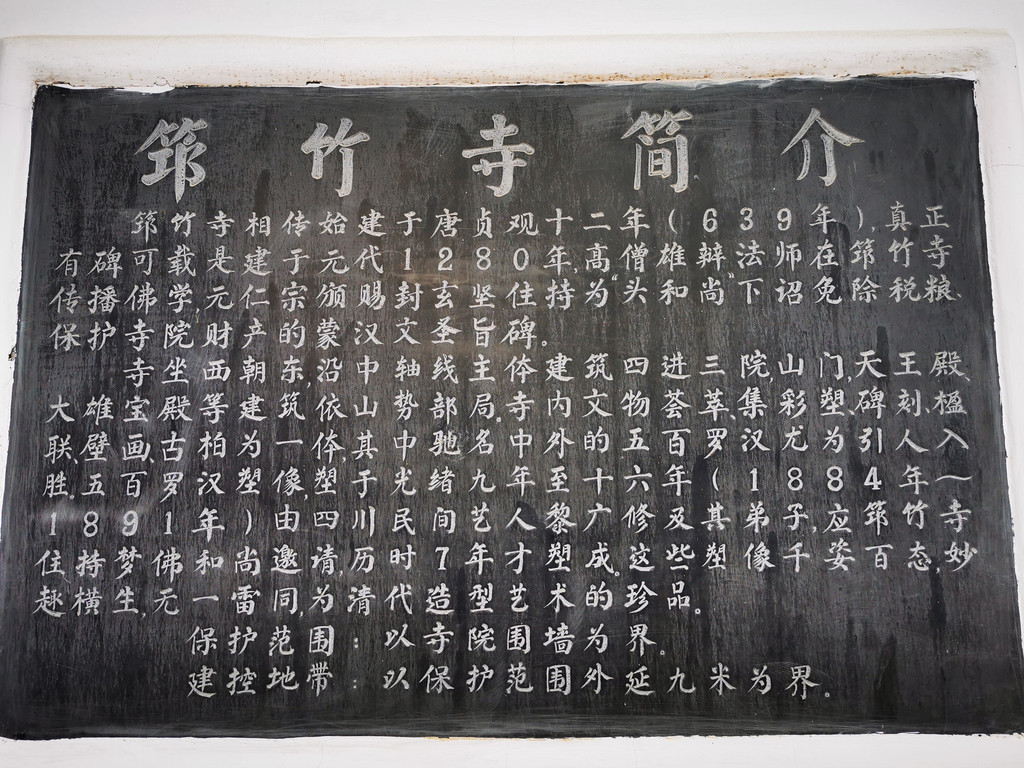 筇竹寺简介
筇竹寺相传始建于唐贞观十二年(639年),真正
有碑可载是建于元代1280年,高僧“雄辩”法师在筇竹寺
传播佛学,元仁宗颁赐封玄坚住持为“头和尚”下诏免除税粮、
保护寺院财产的蒙汉文圣旨碑。
寺坐西朝东,沿中轴线主体建筑四进三院,山门、天王殿、
大雄宝殿等建筑依山势部局。寺内文物荟萃、集彩塑、碑刻、楹
联、壁画、古柏为一体,其中驰名中外的五百罗汉尤为引人入
胜。五百罗汉塑像,塑于光绪九年至十六年(1884年~
1891年)由四川民间艺人黎广修及其弟子,应筇竹寺
住持梦佛和尚邀请,历时7年才塑成。这些塑像千姿百态,妙
趣横生,元一雷同,为清代造型艺术的珍品。
保护范围:以寺院围墙为界。
建控地带:以保护范围外延九米为界。